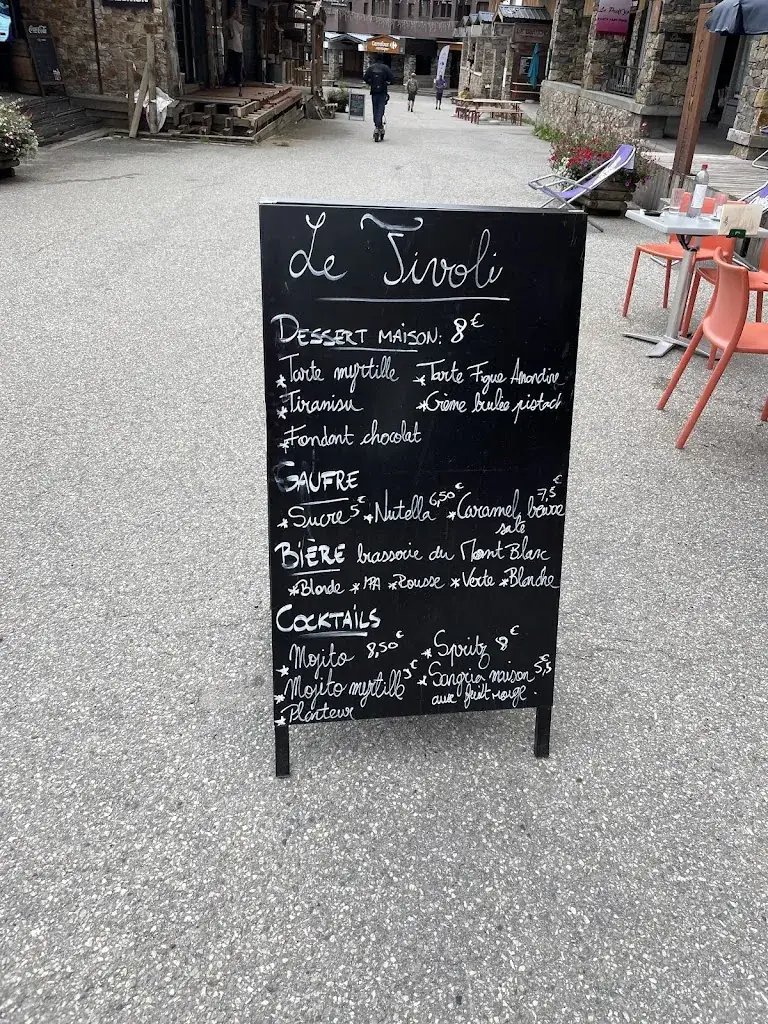 Coca-Cola
Carrefour
Le Tivoli
DESSERT MAISON: 8€
*Tarte myrtille *Tarte Figue Amandine
*Tiramisu *Crème brulée pistach
*Fondant chocolat
GAUFRE
*Sucre 5€ *Nutella 6,50€ *Caramel beurre 7,5€
salé
BIÈRE brasserie du Mont Blanc
*Blonde *IPA *Rousse *Verte *Blanche
COCKTAILS
*Mojito 8,50€ *Spritz 8€
*Mojito myrtille 9€ *Sangria maison 5,5€
*Planteur aux fruit rouge.